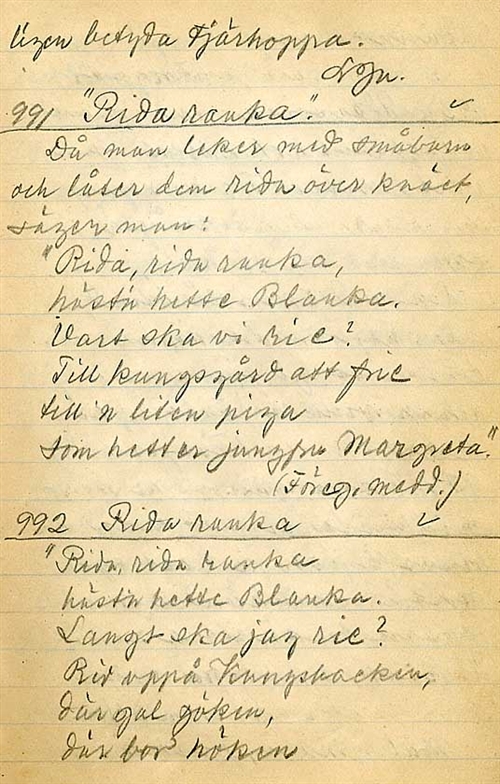 ligen betyda Fjärhoppa.
991 "Rida ranka".
Då man leker med småbarn
och låter dem rida över knäet,
säger man:
"Rida, rida ranka,
häst'n hette Blanka.
Vart ska vi rie?
Till kungsgård att frie
till 'n liten piga
som hetter jungfru Margreta."
(Föreg. medd.)
992 Rida ranka
"Rida, rida ranka
häst'n hette Blanka.
Langt ska jag rie?
Rid uppå Kungsbacken,
där gol göken,
där bor höken